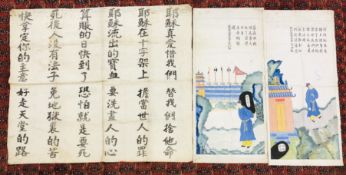 耶穌真愛惜我們　替我們捨他命
耶穌在十字架上　擔當世人的罪
耶穌流出的寶血　要洗盡人的心
算賬的日快到了　恐怕就是要死
死後人沒有法子　免地獄裏的苦
快拿定你的主意　好走天堂的路